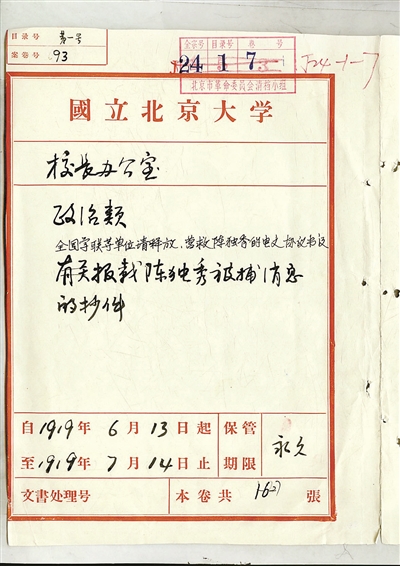 目录号 第一号
案卷号 93
全宗号 目录号 卷 号
24 1 7
北京市革命委员会清档小组
J24-1-7
國立北京大学
校长办公室
政治类
全国学联等单位请释放、营救陈独秀的电文
有关报载陈独秀被捕消息
的抄件
自1919年6月13日起 保管
至1919年7月14日止 期限
永久
文書处理号 本卷共 16 張